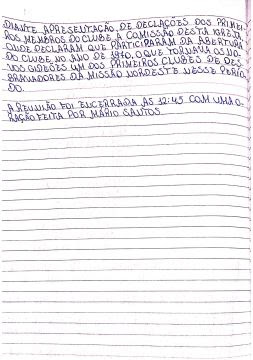 DIANTE APRESENTAÇÃO DE DECLAÇÕES DOS PRIMEI
ROS MEMBROS DO CLUBE A COMISSÃO DESTA IGREJA
ONDE DECLARAM QUE PARTICIPARAM DA ABERTURA
DO CLUBE NO ANO DE 1970. O QUE TORNAVA OS NO
VOS GIDEÕES UM DOS PRIMEIROS CLUBES DE DES
BRAVADORES DA MISSÃO NORDESTE NESSE PERÍO
DO.
A REUNIÃO FOI ENCERRADA AS 12:45 COM UMA O-
RAÇÃO FEITA POR MÁRIO SANTOS